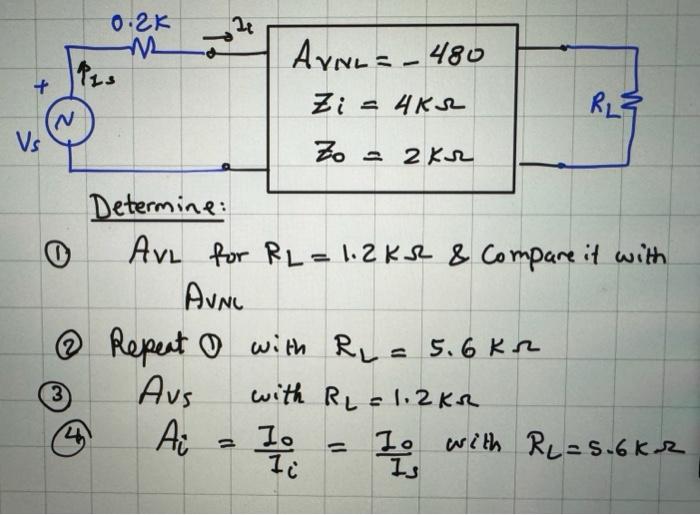 0.2K
Ii
AVNL = - 480
Is
+
Zi = 4KΩ
RL
Vs
Zo = 2KΩ
Determine:
① AVL for RL = 1.2KΩ & Compare it with
AVNL
② Repeat ① with RL = 5.6 KΩ
③ AVS with RL = 1.2KΩ
④ Ai = Io/Ii = Io/Is with RL = 5.6KΩ